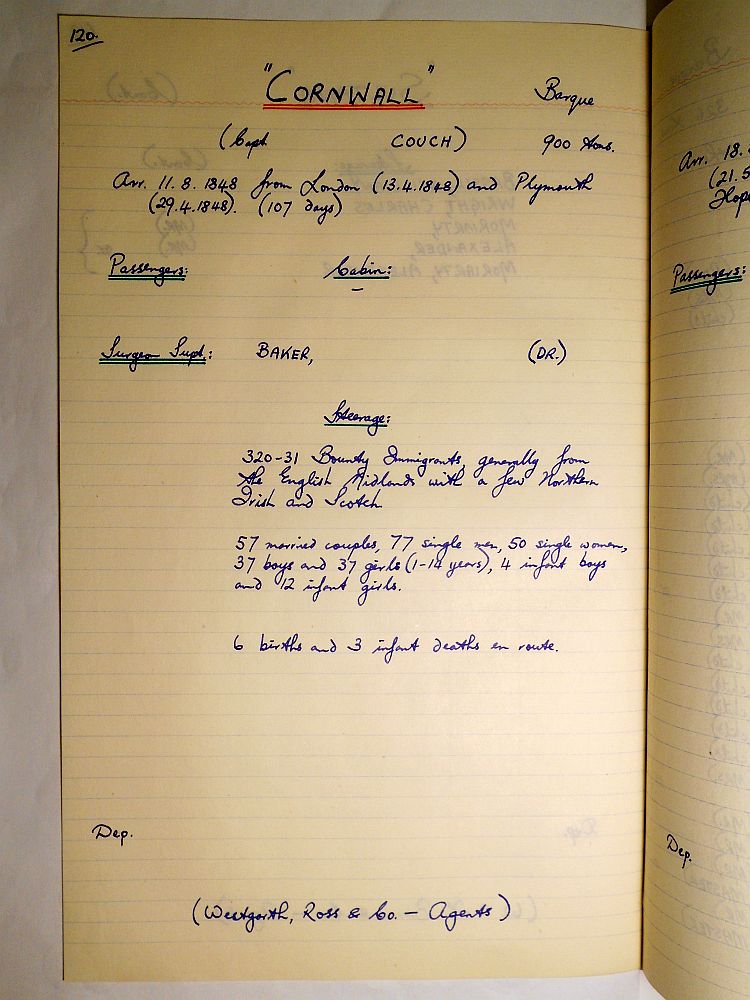 120.
"CORNWALL" Barque
(Capt. COUCH) 900 tons.
Arr. 11.8.1848 from London (13.4.1848) and Plymouth
(29.4.1848). (107 days)
Passengers: Cabin:
–
Surgeon Supt.: BAKER, (DR.)
Steerage:
320-31 Bounty Immigrants, generally from
the English Midlands with a few Northern
Irish and Scotch
57 married couples, 77 single men, 50 single women,
37 boys and 37 girls (1-14 years), 4 infant boys
and 12 infant girls.
6 births and 3 infant deaths en route.
Dep.
(Westgarth, Ross & Co. – Agents)
Arr. 18.
(21.5
Hope
Passengers:
Dep.